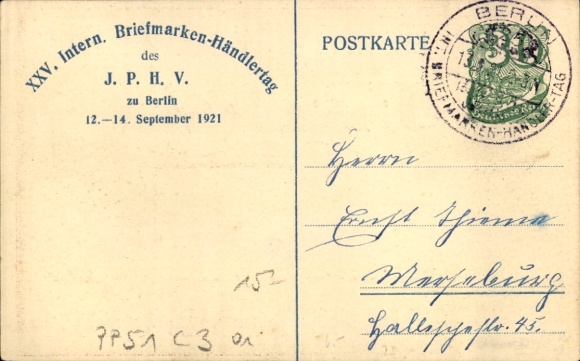 XXV. Intern. Briefmarken-Händlertag
des
J. P. H. V.
zu Berlin
12.—14. September 1921
POSTKARTE
BERLIN
BRIEFMARKEN-HÄNDLER-TAG
Herrn
Ernst Thieme
Merseburg
Hallesche str. 45.
15-
PP51 C3